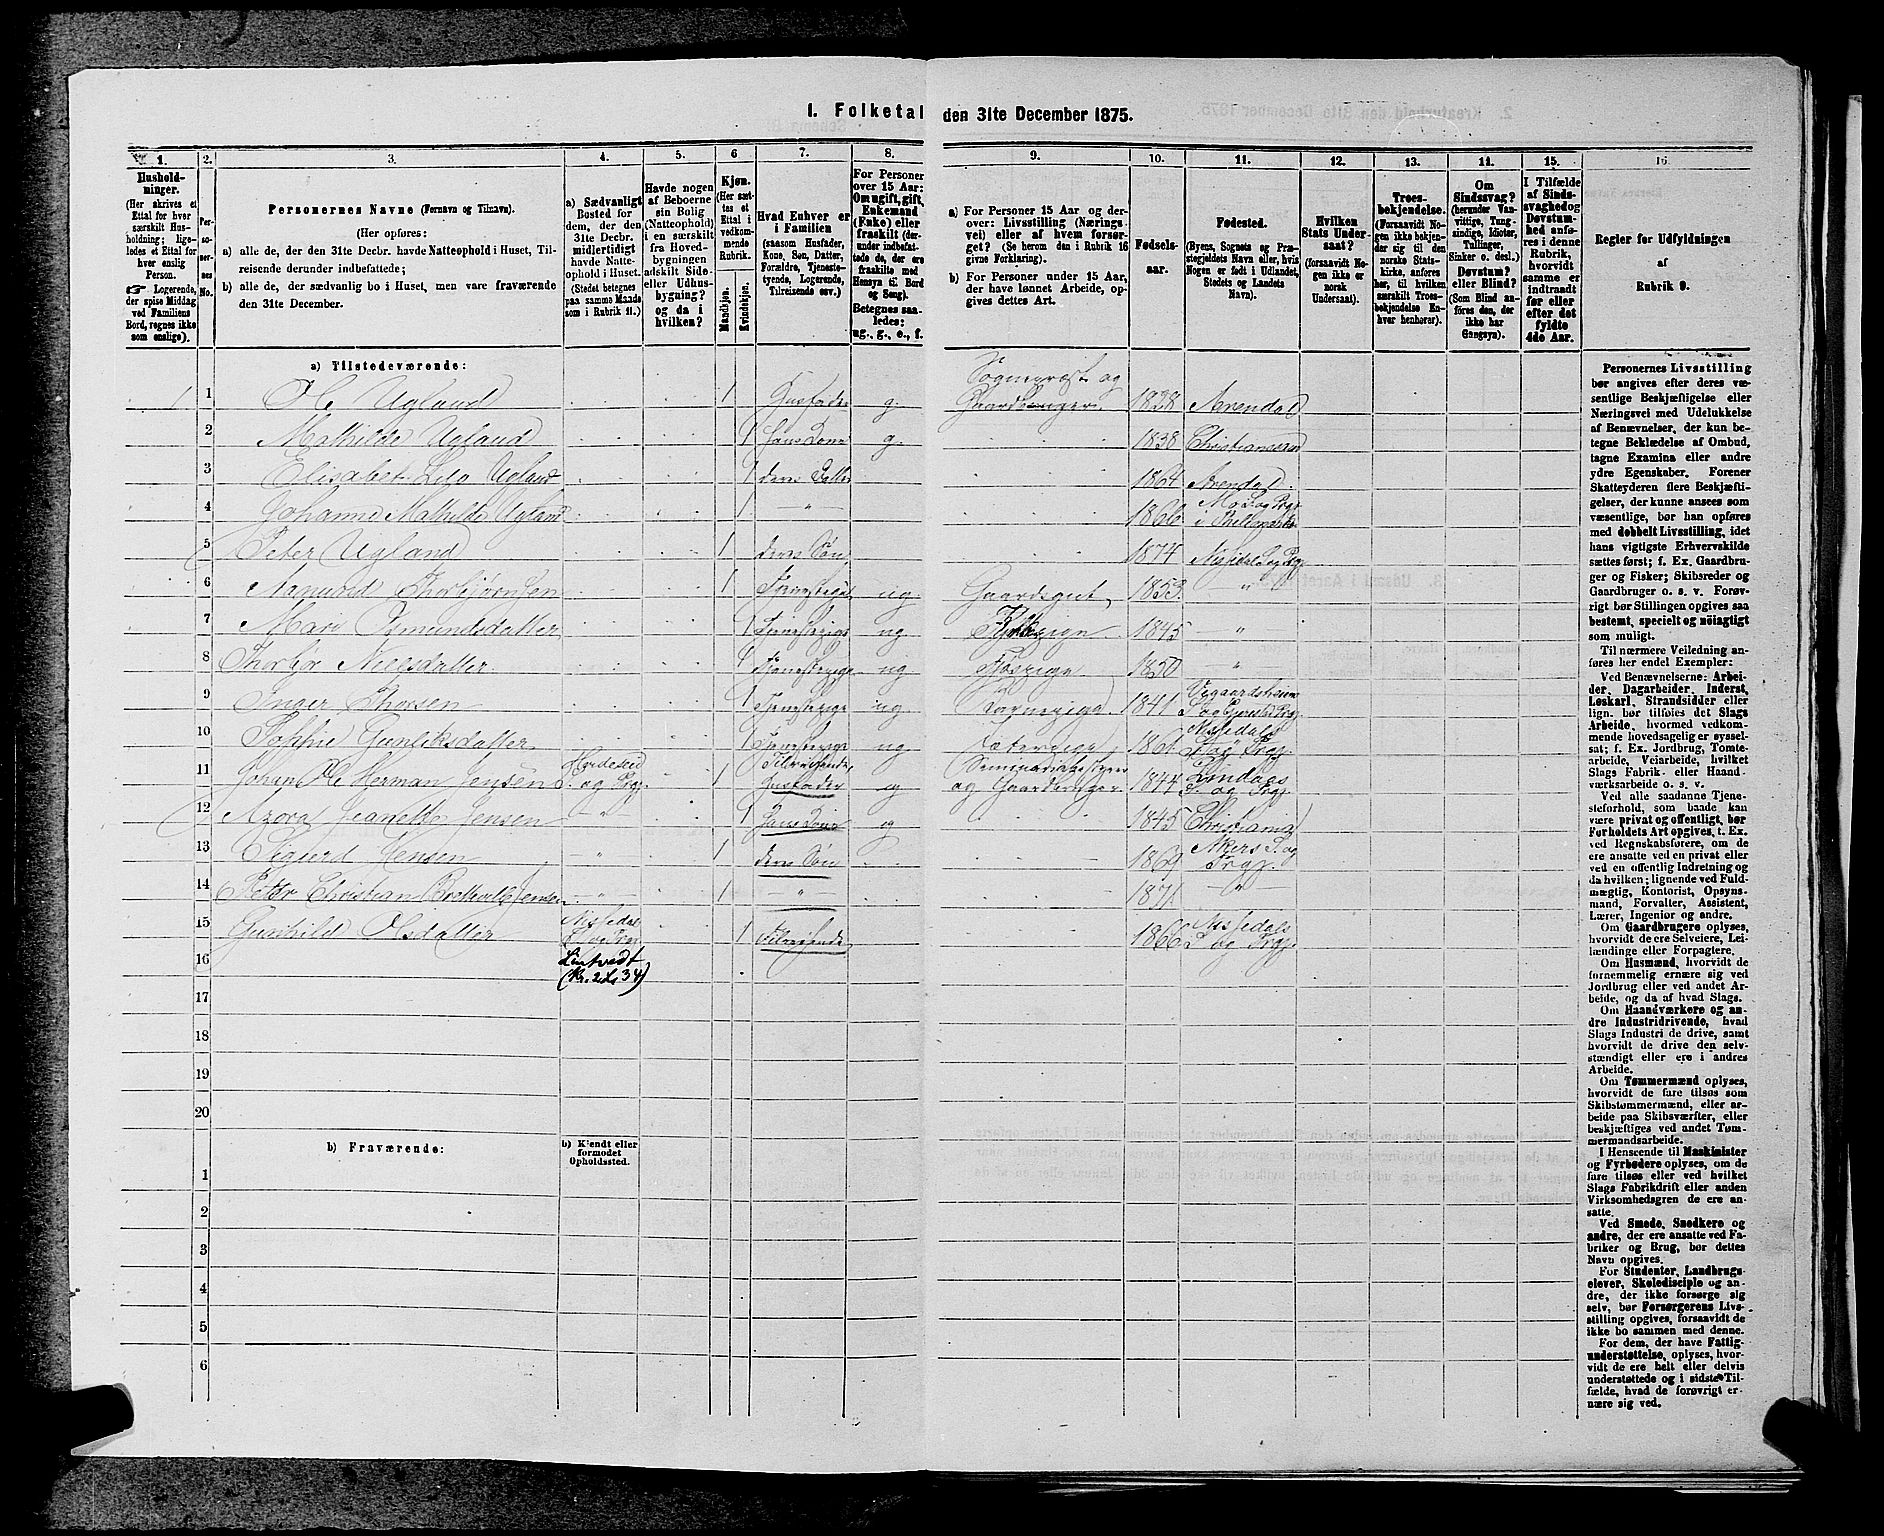 1. Folketal den 31te December 1875.
1.
Husholdninger.
(Her skrives et
Ettal for hver
særskilt Husholdning;
ligeledes et Ettal for
hver enslig
Person.
☞ Logerende,
der spise Middag
ved Familiens
Bord, regnes ikke
som enslige).
2.
Personernes
No.
3.
Personernes Navne (Fornavn og Tilnavn).
(Her opføres:
a) alle de, der den 31te Decbr. havde Natteophold i Huset, Tilreisende derunder indbefattede;
b) alle de, der sædvanlig bo i Huset, men vare fraværende
den 31te December.
4.
a) Sædvanligt
Bosted for
dem, der den
31te Decbr.
midlertidigt
havde Natteophold
i Huset.
(Stedet betegnes
paa samme Maade
som i Rubrik 11.)
5.
Havde nogen
af Beboerne
sin Bolig
(Natteophold)
i en særskilt
fra Hovedbygningen
adskilt Side-
eller Udhusbygning?
og da i
hvilken?
6
Kjøn.
(Her sættes
et
Ettal i
vedkommende
Rubrik.
Mandkjøn.
Kvindekjøn.
7.
Hvad Enhver er
i Familien
(saasom Husfader,
Kone, Søn, Datter,
Forældre, Tjenestetyende,
Logerende,
Tilreisende osv.)
8.
For Personer
over 15 Aar:
Om ugift, gift,
Enkemand
(Enke) eller
fraskilt (derunder
indbefattede
de, der ere
fraskilte med
Hensyn til Bord
og Seng).
Betegnes saaledes:
ug., g., e., f.
9.
a) For Personer 15 Aar og derover:
Livsstilling (Næringsvei)
eller af hvem forsørget?
(Se herom den i Rubrik 16
givne Forklaring).
b) For Personer under 15 Aar,
der have lønnet Arbeide, opgives
dettes Art.
10.
Fødselsaar.
11.
Fødested.
(Byens, Sognets og Præstegjeldets
Navn eller, hvis
Nogen er født i Udlandet,
Stedets og Landets
Navn).
12.
Hvilken
Stats Undersaat?
(forsaavidt Nogen
ikke er
norsk
Undersaat).
13.
Troesbekjendelse.
(Forsaavidt Nogen
ikke bekjender
sig til den
norske Statskirke,
anføres
her, til hvilket
særskilt Troesbekjendelse
Enhver
henhører).
14.
Om
Sindssvag?
(herunder Vanvittige,
Tungsindige,
Idioter,
Tullinger,
Sinker o. desl.)
Døvstum?
eller Blind?
(Som Blind anføres
den, der
ikke har
Gangsyn).
15.
I Tilfælde
af Sindssvaghed
og
Døvstumhed
anføres
i denne
Rubrik,
hvorvidt
samme er
indtraadt
før eller
efter det
fyldte
4de Aar.
16
Regler for Udfyldningen
af
Rubrik 9.
a) Tilstedeværende:
Sogneprest og
1 1 O Ugland 1 Husfader g. Gaardbruger 1828 Arendal
2 Mathilde Ugland 1 Husmoder g. 1838 Christianssand
3 Elisabet Ugland 1 deres Datter 1864 Arendal
4 Johanne Mathilde Ugland 1 " 1866 Mo S og Prgj i Thellemarken
5 Peter Ugland 1 deres Søn 1874 Nissedal S og Prgj
6 Aamund Thorbjørnsen 1 Tjenestegut ug Gaardsgut 1853 "
7 Mari Osmundsdatter 1 Tjenestepige ug 1845 "
8 Thorbjør Nielsdatter 1 Tjenestepige ug Fjøspige 1850 "
9 Inger Thorsen 1 Tjenestepige ug Barnepige 1841 Vegaardsheien S og Gjerestad Prgj
10 Sophie Gunliksdatter 1 Tjenestepige ug 1861 Nissedals S og Prgj.
11 Johan Ole Herman Jensen Hvideseid S. og Prgj. 1 Tilreisende Husfader g Seminariebestyrer og Gaardbruger 1844 S. og Prgj.
12 Azora Jeanette Jensen " 1 Husmoder g 1845 Christiania
13 Sigurd Jensen " 1 deres Søn 1869 Akers S. og Prgj.
14 Peter Christian Jensen " 1 " 1871 "
15 Gunhild Olsdatter Nissedal S og Prgj 1 Tilreisende 1866 Nissedals S og Prgj
16 Lintvedt
(Kr. 2 Ls 34)
17
18
19
20
b) Fraværende:
b) Kjendt eller
formodet
Opholdssted.
1
2
3
4
5
6
Personernes Livsstilling
bør angives efter deres væsentlige
Beskjæftigelse eller
Næringsvei med Udelukkelse
af Benævnelser, der kun betegne
Beklædelse af Ombud,
tagne Examina eller andre
ydre Egenskaber. Forener
Skatteyderen flere Beskjæftigelser,
der kunne ansees som
væsentlige, bør han opføres
med dobbelt Livsstilling, idet
hans vigtigste Erhvervskilde
sættes først; f. Ex. Gaardbruger
og Fisker; Skibsreder og
Gaardbruger o. s. v. Forøvrigt
bør Stillingen opgives saa
bestemt, specielt og nøiagtigt
som muligt.
Til nærmere Veiledning anføres
her endel Exempler:
Ved Benævnelserne: Arbeider,
Dagarbeider, Inderst,
Løskarl, Strandsidder eller
lign. bør tilføies det Slags
Arbeide, hvormed vedkommende
hovedsagelig er sysselsat;
f. Ex. Jordbrug, Tomtearbeide,
Veiarbeide, hvilket
Slags Fabrik- eller Haandværksarbeide
o. s. v.
Ved alle saadanne Tjenesteforhold,
som baade kan
være privat og offentligt, bør
Forholdets Art opgives, t. Ex.
ved Regnskabsførere, om de
ere ansatte ved en privat eller
ved en offentlig Indretning og
da hvilken; lignende ved Fuldmægtig,
Kontorist, Opsynsmand,
Forvalter, Assistent,
Lærer, Ingeniør og andre.
Om Gaardbrugere oplyses,
hvorvidt de ere Selveiere, Leilændinge
eller Forpagtere.
Om Husmænd, hvorvidt de
fornemmelig ernære sig ved
Jordbrug eller ved andet Arbeide,
og da af hvad Slags.
Om Haandværkere og andre
Industridrivende, hvad
Slags Industri de drive, samt
hvorvidt de drive den selvstændigt
eller ere i andres
Arbeide.
Om Tømmermænd oplyses,
hvorvidt de fare tilsøs som
Skibstømmermænd, eller arbeide
paa Skibsværfter, eller
beskjæftiges ved andet Tømmermandsarbeide.
I Henseende til Maskinister
og Fyrbødere oplyses, om de
fare tilsøs eller ved hvilket
Slags Fabrikdrift eller anden
Virksomhedsgren de ere ansatte.
Ved Smede, Snedkere og
andre, der ere ansatte ved Fabriker
og Brug, bør dettes
Navn opgives.
For Studenter, Landbrugselever,
Skoledisciple og andre,
der ikke forsørge sig
selv, bør Forsørgerens Livsstilling
opgives, forsaavidt de
ikke bo sammen med denne.
For dem, der have Fattigunderstøttelse,
oplyses, hvorvidt
de ere helt eller delvis
understøttede og i sidste Tilfælde,
hvad de forøvrigt ernære
sig ved.